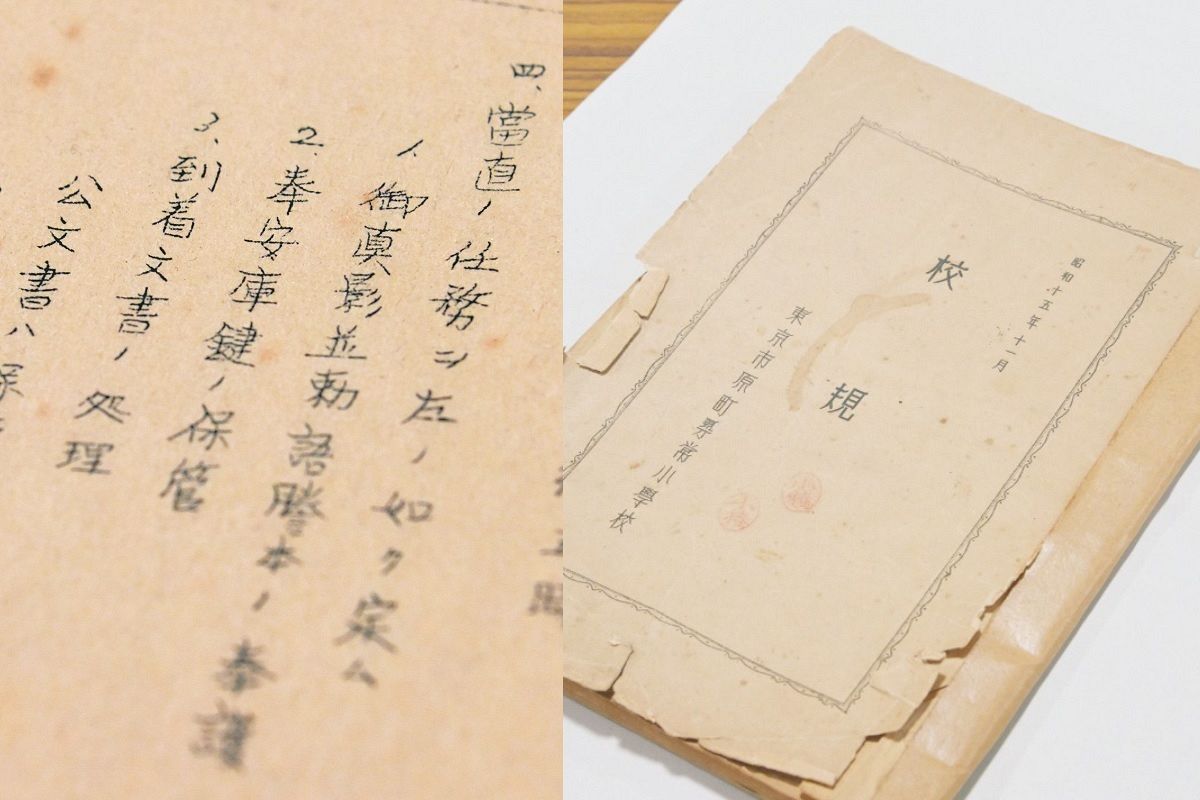 四、當直ノ任務ヲ左ノ如ク定ム
1、御真影並勅語謄本ノ奉護
2、奉安庫鍵ノ保管
3、到着文書ノ処理
公文書ハ
昭和十五年十一月
校規
東京市原町尋常小學校